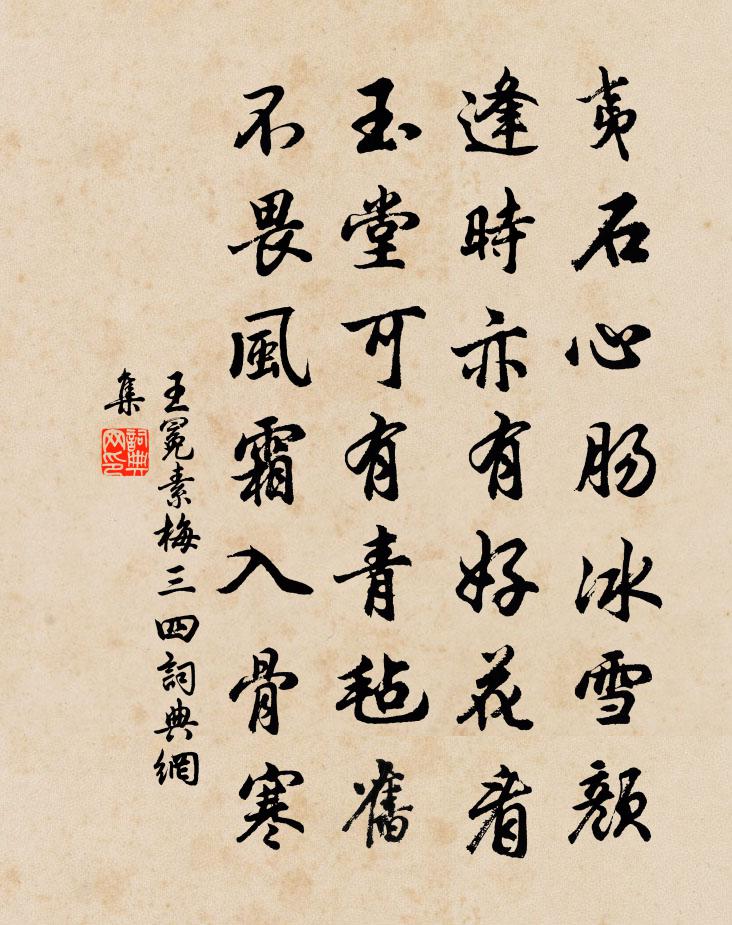 夷石心肠冰雪顏
逢時亦有好花看
玉堂可有青毡舊
不畏風霜入骨寒
王冕素梅三四詞典網
集
詞典
网印